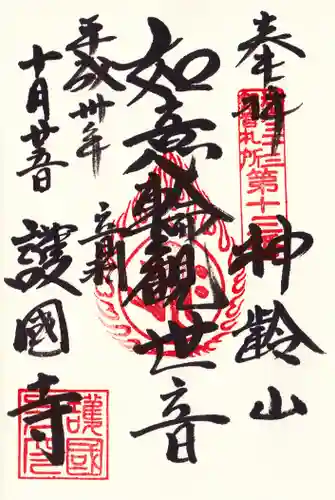 奉拝
神齢山
如意輪観世音
平成卅年
十月廿五日
護國寺
第十三番
札所
護國